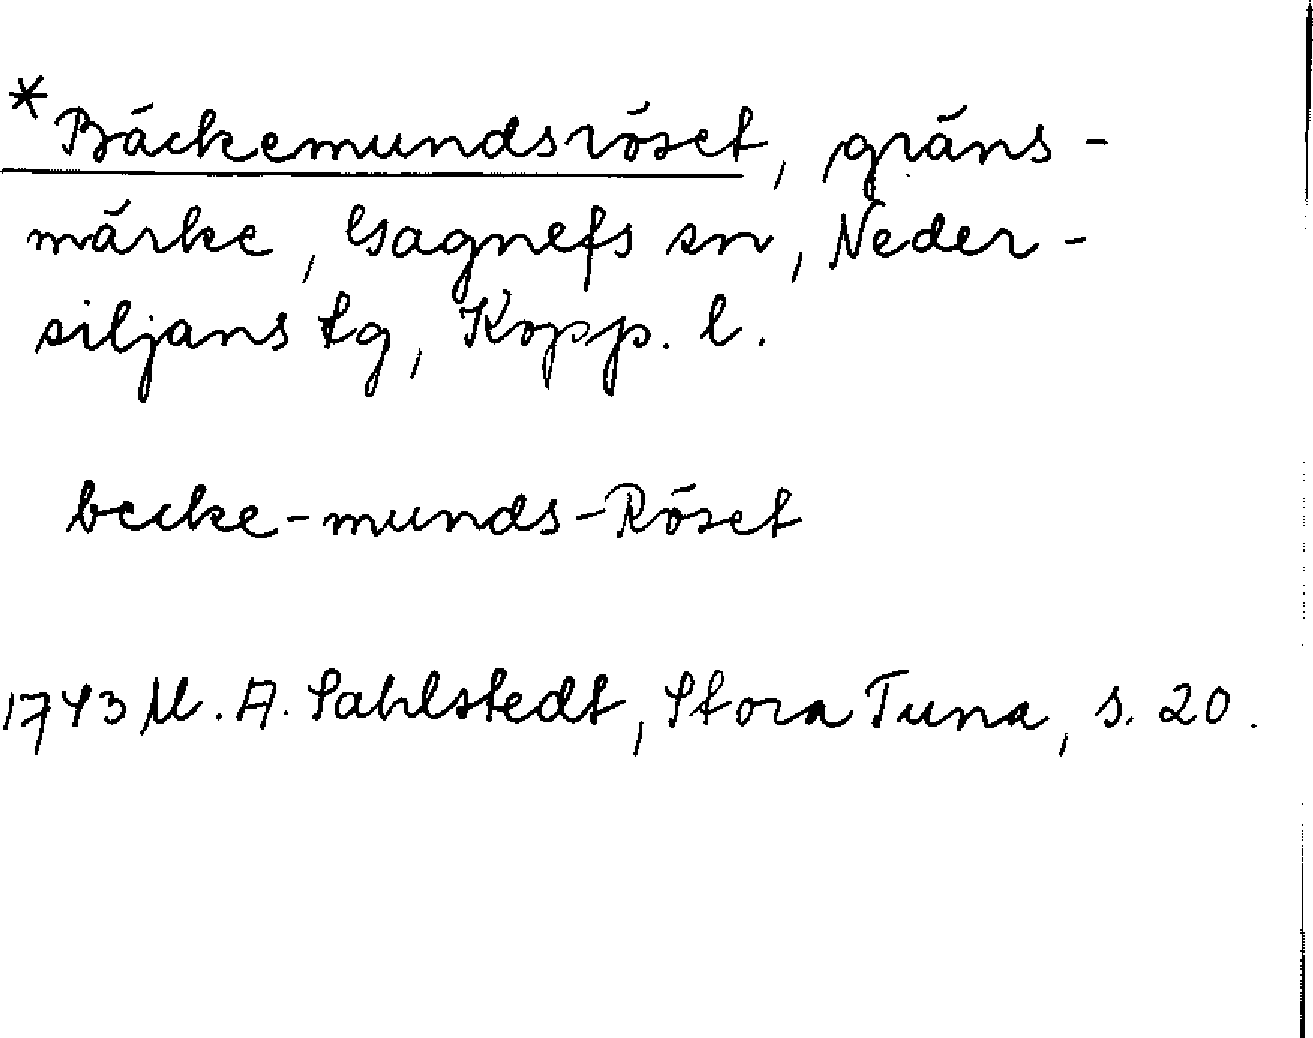 *Bäckemundsröset, gräns-
märke, Gagnefs sn, Neder-
siljans tg, Kopp. l.
becke-munds-Röset
1743 M. A. Sahlstedt, Stora Tuna, s. 20.